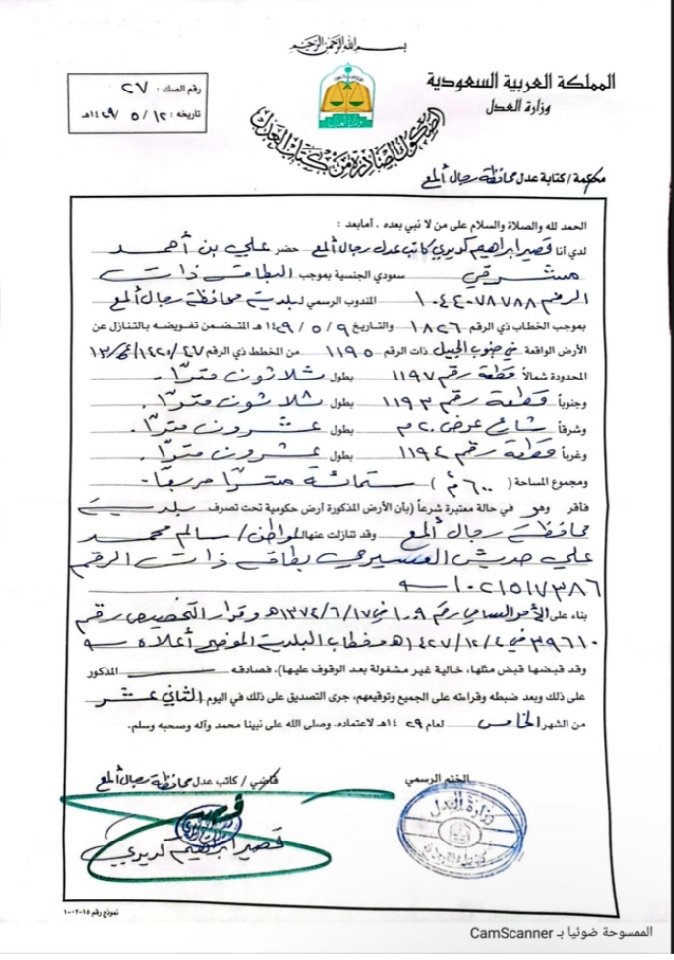 بسم الله الرحمن الرحيم
المملكة العربية السعودية
وزارة العدل
رقم الصك : ٢٧
تاريخه : ١٢ / ٥ / ١٤٢٩هـ
وزارة العدل
الصكوك الصادرة من كتاب العدل
محكمة / كتابة عدل محافظة رجال ألمع
الحمد لله والصلاة والسلام على من لا نبي بعده . أمابعد :
لدي أنا قصير ابراهيم كديري كاتب عدل رجال ألمع حضر علي بن أحمد
مشرقي سعودي الجنسية بموجب البطاقة ذات
الرقم ١٠٤٢٠٧٨٧٨٨ المندوب الرسمي لبلدية محافظة رجال ألمع
بموجب الخطاب ذي الرقم ١٨٢٦ والتاريخ ٩ / ٥ / ١٤٢٩هـ المتضمن تفويضه بالتنازل عن
الأرض الواقعة في جنوب الجبيل ذات الرقم ١١٩٥ من المخطط ذي الرقم
المحدودة شمالاً قطعة رقم ١١٩٧ بطول ثلاثون متراً .
وجنوباً قطعة رقم ١١٩٣ بطول ثلاثون متراً .
وشرقاً شارع عرض ٢٠ م بطول عشرون متراً .
وغرباً قطعة رقم ١١٩٤ بطول عشرون متراً .
ومجموع المساحة ( ٦٠٠ م٢ ) ستمائة متراً مربعاً .
فأقر وهو في حالة معتبرة شرعاً (بأن الأرض المذكورة أرض حكومية تحت تصرف بلدية
محافظة رجال ألمع وقد تنازلت عنها للمواطن / سالم محمد
علي حديش العسيري بطاقة ذات الرقم
١٠٢١٥١٧٣٨٦
بناء على الأمر السامي رقم ١٠٠٩ في ١٧ / ٦ / ١٣٧٤هـ وقرار التخصيص رقم
٣٩٦١٠ في ٤ / ١٢ / ١٤٢٧هـ وخطاب البلدية الموضح أعلاه
وقد قبضها قبض مثلها، خالية غير مشغولة بعد الوقوف عليها). فصادقه المذكور
على ذلك وبعد ضبطه وقراءته على الجميع وتوقيعهم، جرى التصديق على ذلك في اليوم الثاني عشر
من الشهر الخامس لعام ١٤٢٩هـ لاعتماده. وصلى الله على نبينا محمد وآله وصحبه وسلم.
الختم الرسمي
قاضي / كاتب عدل محافظة رجال ألمع
وزارة العدل
قصير ابراهيم كديري
نموذج رقم ١٥-٢-١٠٠
الممسوحة ضوئيا بـ CamScanner